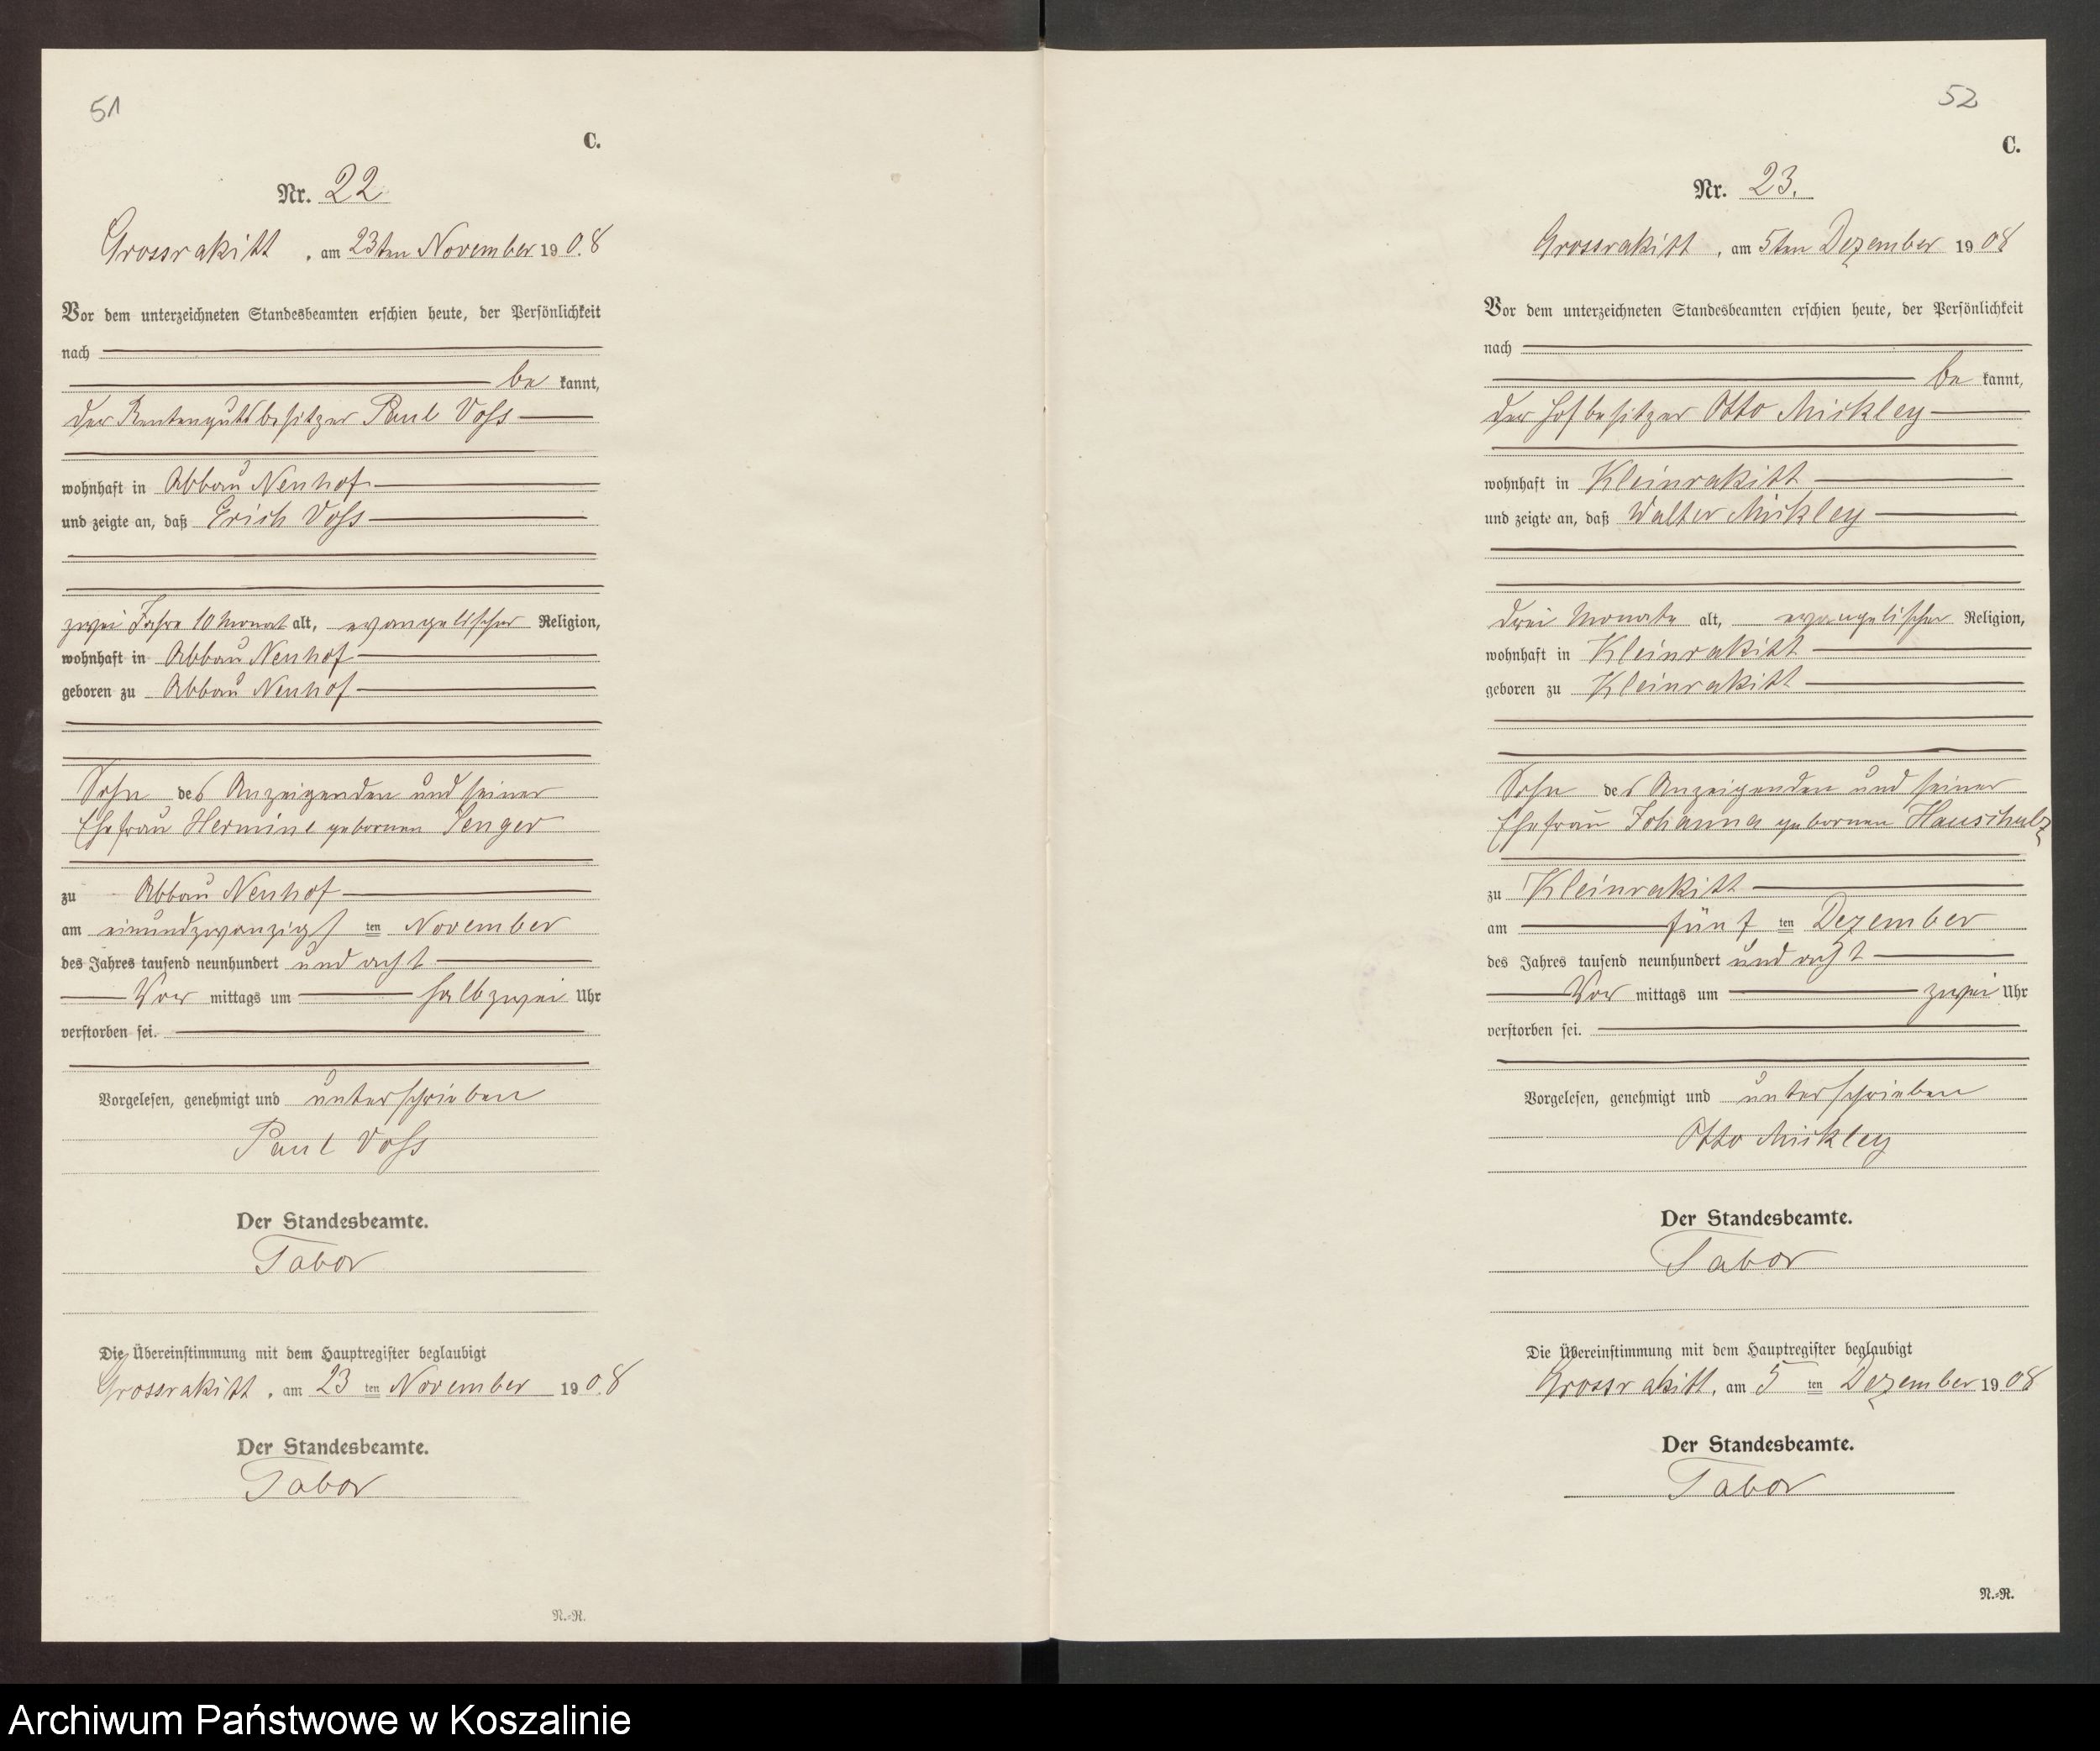 51
C.
Nr. 22
Grossrakitt, am 23ten November 1908
Vor dem unterzeichneten Standesbeamten erschien heute, der Persönlichkeit
nach
be kannt,
der Rentengutsbesitzer Paul Voss
wohnhaft in Abbau Neuhof
und zeigte an, daß Erich Voss
zwei Jahre 10 Monat alt, evangelischer Religion,
wohnhaft in Abbau Neuhof
geboren zu Abbau Neuhof
Sohn des Anzeigenden und seiner
Ehefrau Hermine gebornen Senger
zu Abbau Neuhof
am einundzwanzigsten November
des Jahres tausend neunhundert und acht
Vor mittags um halb zwei Uhr
verstorben sei.
Vorgelesen, genehmigt und unterschrieben
Paul Voss
Der Standesbeamte.
Tabor
Die Übereinstimmung mit dem Hauptregister beglaubigt
Grossrakitt, am 23 ten November 1908
Der Standesbeamte.
Tabor
N.-R.
52
C.
Nr. 23.
Grossrakitt, am 5ten Dezember 1908
Vor dem unterzeichneten Standesbeamten erschien heute, der Persönlichkeit
nach
be kannt,
der Hofbesitzer Otto Mickley
wohnhaft in Kleinrakitt
und zeigte an, daß Walter Mickley
drei Monate alt, evangelischer Religion,
wohnhaft in Kleinrakitt
geboren zu Kleinrakitt
Sohn des Anzeigenden und seiner
Ehefrau Johanna gebornen Hauschulz
zu Kleinrakitt
am fünf ten Dezember
des Jahres tausend neunhundert und acht
Vor mittags um zwei Uhr
verstorben sei.
Vorgelesen, genehmigt und unterschrieben
Otto Mickley
Der Standesbeamte.
Tabor
Die Übereinstimmung mit dem Hauptregister beglaubigt
Grossrakitt, am 5 ten Dezember 1908
Der Standesbeamte.
Tabor
N.-R.
Archiwum Państwowe w Koszalinie